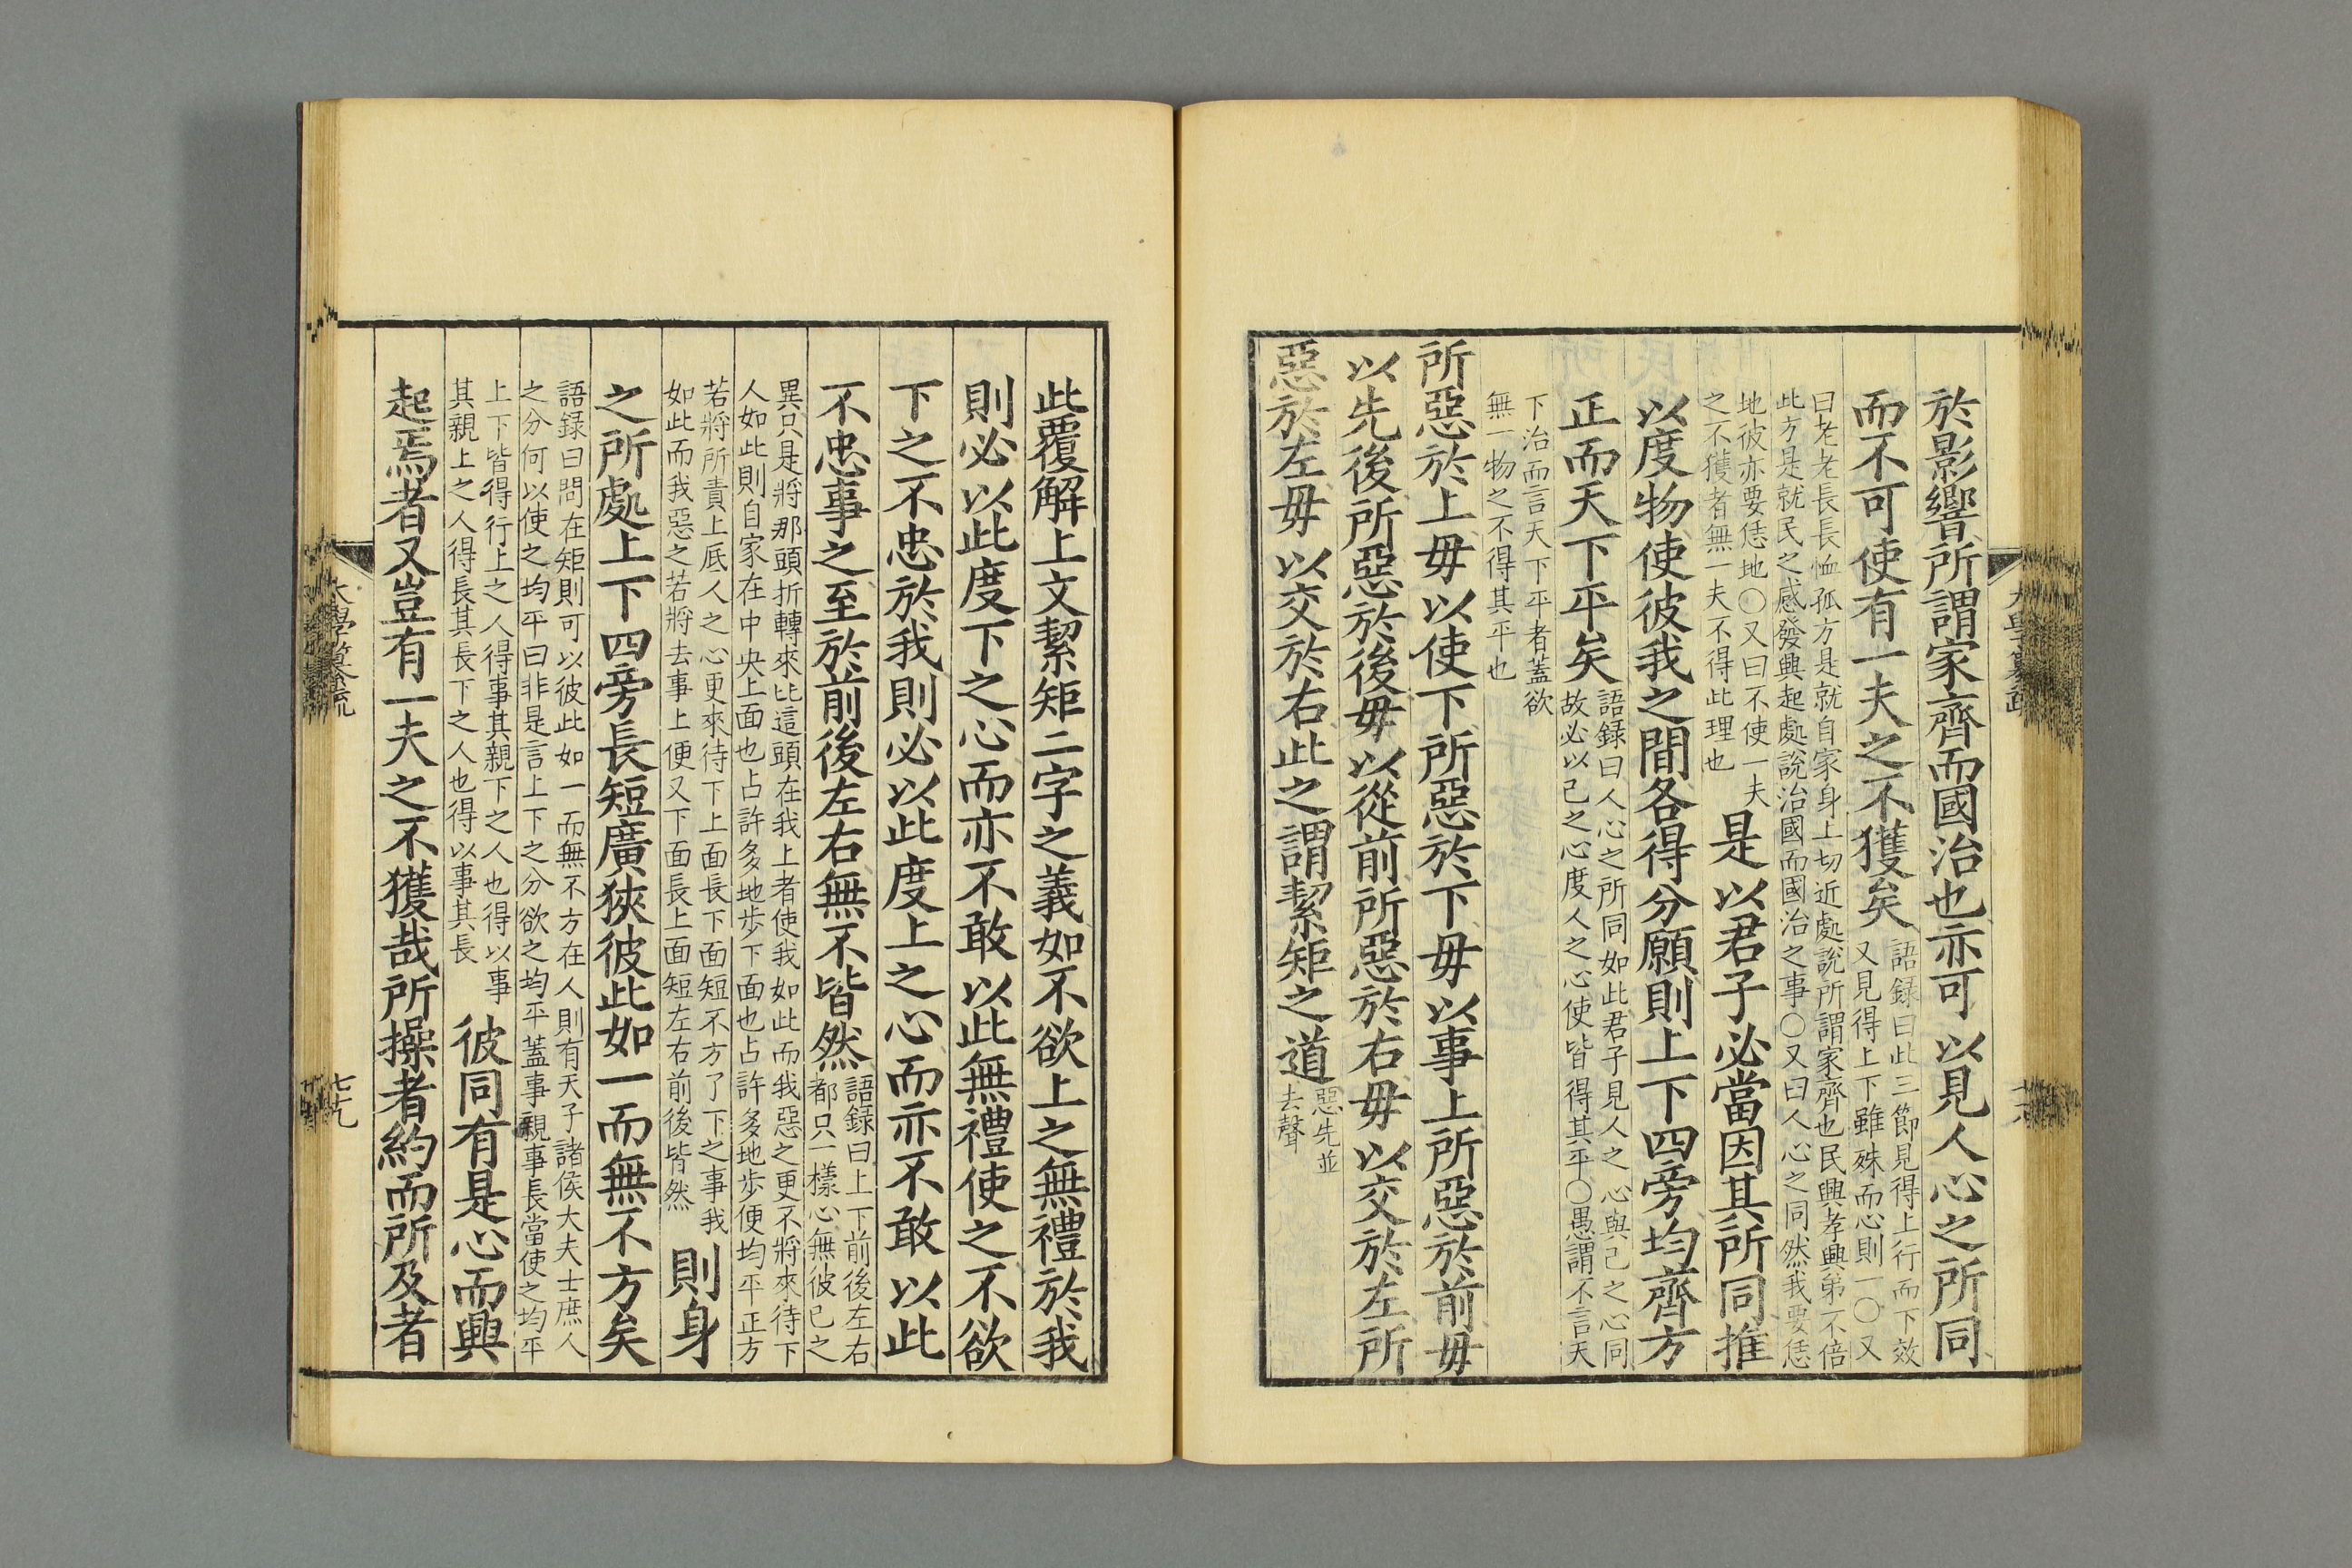 於影響所謂家齊而國治也亦可以見人心之所同
而不可使有一夫之不獲矣
語録曰此三節見得上行而下效
又見得上下雖殊而心則一〇又
曰老老長長恤孤方是就自家身上切近處說所謂家齊也民興孝興弟不倍
此方是就民之感發興起處說治國而國治之事〇又曰人心之同然我要恁
地彼亦要恁地〇又曰不使一夫
之不獲者無一夫不得此理也
是以君子必當因其所同推
以度物使彼我之間各得分願則上下四旁均齊方
正而天下平矣
語録曰人心之所同如此君子見人之心與己之心同
故必以己之心度人之心使皆得其平〇愚謂不言天
下治而言天下平者蓋欲
無一物之不得其平也
所惡於上毋以使下所惡於下毋以事上所惡於前毋
以先後所惡於後毋以從前所惡於右毋以交於左所
惡於左毋以交於右此之謂絜矩之道
惡先並
去聲
此覆解上文絜矩二字之義如不欲上之無禮於我
則必以此度下之心而亦不敢以此無禮使之不欲
下之不忠於我則必以此度上之心而亦不敢以此
不忠事之至於前後左右無不皆然
語録曰上下前後左右
都只一樣心無彼已之
異只是將那頭折轉來比這頭在我上者使我如此而我惡之更不將來待下
人如此則自家在中央上面也占許多地步下面也占許多地步便均平正方
若將所責上底人之心更來待下上面長下面短不方了下之事我
如此而我惡之若將去事上便又下面長上面短左右前後皆然
則身
之所處上下四旁長短廣狹彼此如一而無不方矣
語録曰問在矩則可以彼此如一而無不方在人則有天子諸侯大夫士庶人
之分何以使之均平曰非是言上下之分欲之均平蓋事親事長當使之均平
上下皆得行上之人得事其親下之人也得以事
其親上之人得長其長下之人也得以事其長
彼同有是心而興
起焉者又豈有一夫之不獲哉所操者約而所及者
大學纂疏
七九